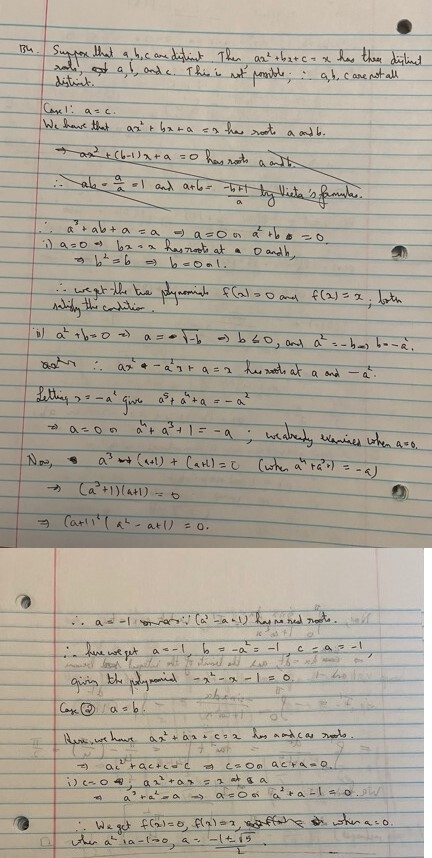 B4. Suppose that a, b, c are distinct. Then ax² + bx + c = x has three distinct
roots, a, b, and c. This is not possible; ∴ a, b, c are not all
distinct.
Case 1: a = c.
We have that ax² + bx + a = x has roots a and b.
⇒ ax² + (b-1)x + a = 0 has roots a and b.
∴ ab = a/a = 1 and a+b = (-b+1)/a by Vieta's formulas.
∴ a³ + ab + a = a ⇒ a = 0 or a² + b = 0.
i) a = 0 ⇒ bx = x has roots at 0 and b,
⇒ b² = b ⇒ b = 0 or 1.
∴ we get the two polynomials f(x) = 0 and f(x) = x; both
satisfy the condition.
ii) a² + b = 0 ⇒ a = √-b ⇒ b ≤ 0, and a² = -b ⇒ b = -a².
∴ ax² - a²x + a = x has roots at a and -a².
Letting x = -a² gives a⁵ + a⁴ + a = -a²
⇒ a = 0 or a⁴ + a³ + 1 = -a; we already examined when a = 0.
Now, a³(a+1) + (a+1) = 0 (when a⁴ + a³ + 1 = -a)
⇒ (a³+1)(a+1) = 0
⇒ (a+1)²(a² - a + 1) = 0.
∴ a = -1 ∵ (a² - a + 1) has no real roots.
∴ here we get a = -1, b = -a² = -1, c = a = -1,
giving the polynomial -x² - x - 1 = 0.
Case ②: a = b.
Here, we have ax² + ax + c = x has a and c as roots.
⇒ ac² + ac + c = c ⇒ c = 0 or ac + a = 0.
i) c = 0 ⇒, ax² + ax = x at a
⇒ a³ + a² = a ⇒ a = 0 or a² + a - 1 = 0.
∴ We get f(x) = 0, f(x) = x when a = 0.
when a² + a - 1 = 0, a = (-1 ± √5)/2